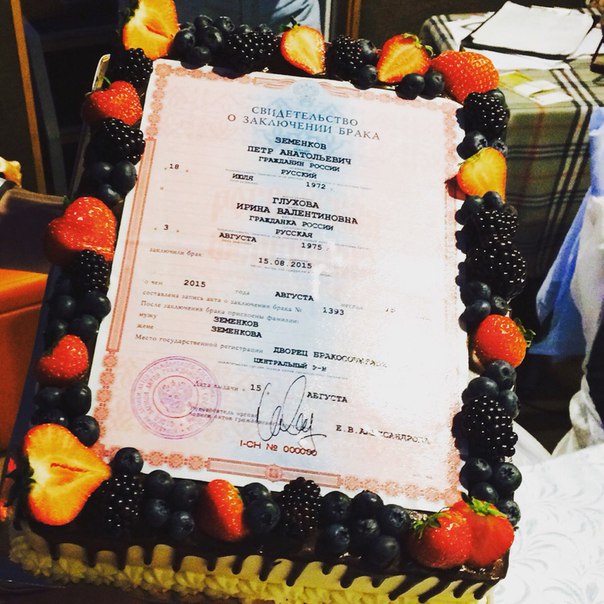 СВИДЕТЕЛЬСТВО
О ЗАКЛЮЧЕНИИ БРАКА
ЗЕМЕНКОВ
ПЕТР АНАТОЛЬЕВИЧ
ГРАЖДАНИН РОССИИ
РУССКИЙ
18
ИЮЛЯ 1972
ГЛУХОВА
ИРИНА ВАЛЕНТИНОВНА
ГРАЖДАНКА РОССИИ
РУССКАЯ
3 АВГУСТА 1975
заключили брак
15.08.2015
о чем 2015 года АВГУСТА месяца
составлена запись акта о заключении брака № 1393
После заключения брака присвоены фамилии:
мужу ЗЕМЕНКОВ
жене ЗЕМЕНКОВА
Место государственной регистрации ДВОРЕЦ
ЦЕНТРАЛЬНЫЙ Р-Н
Дата выдачи 15 АВГУСТА
Е.В.
I-СН № 000090